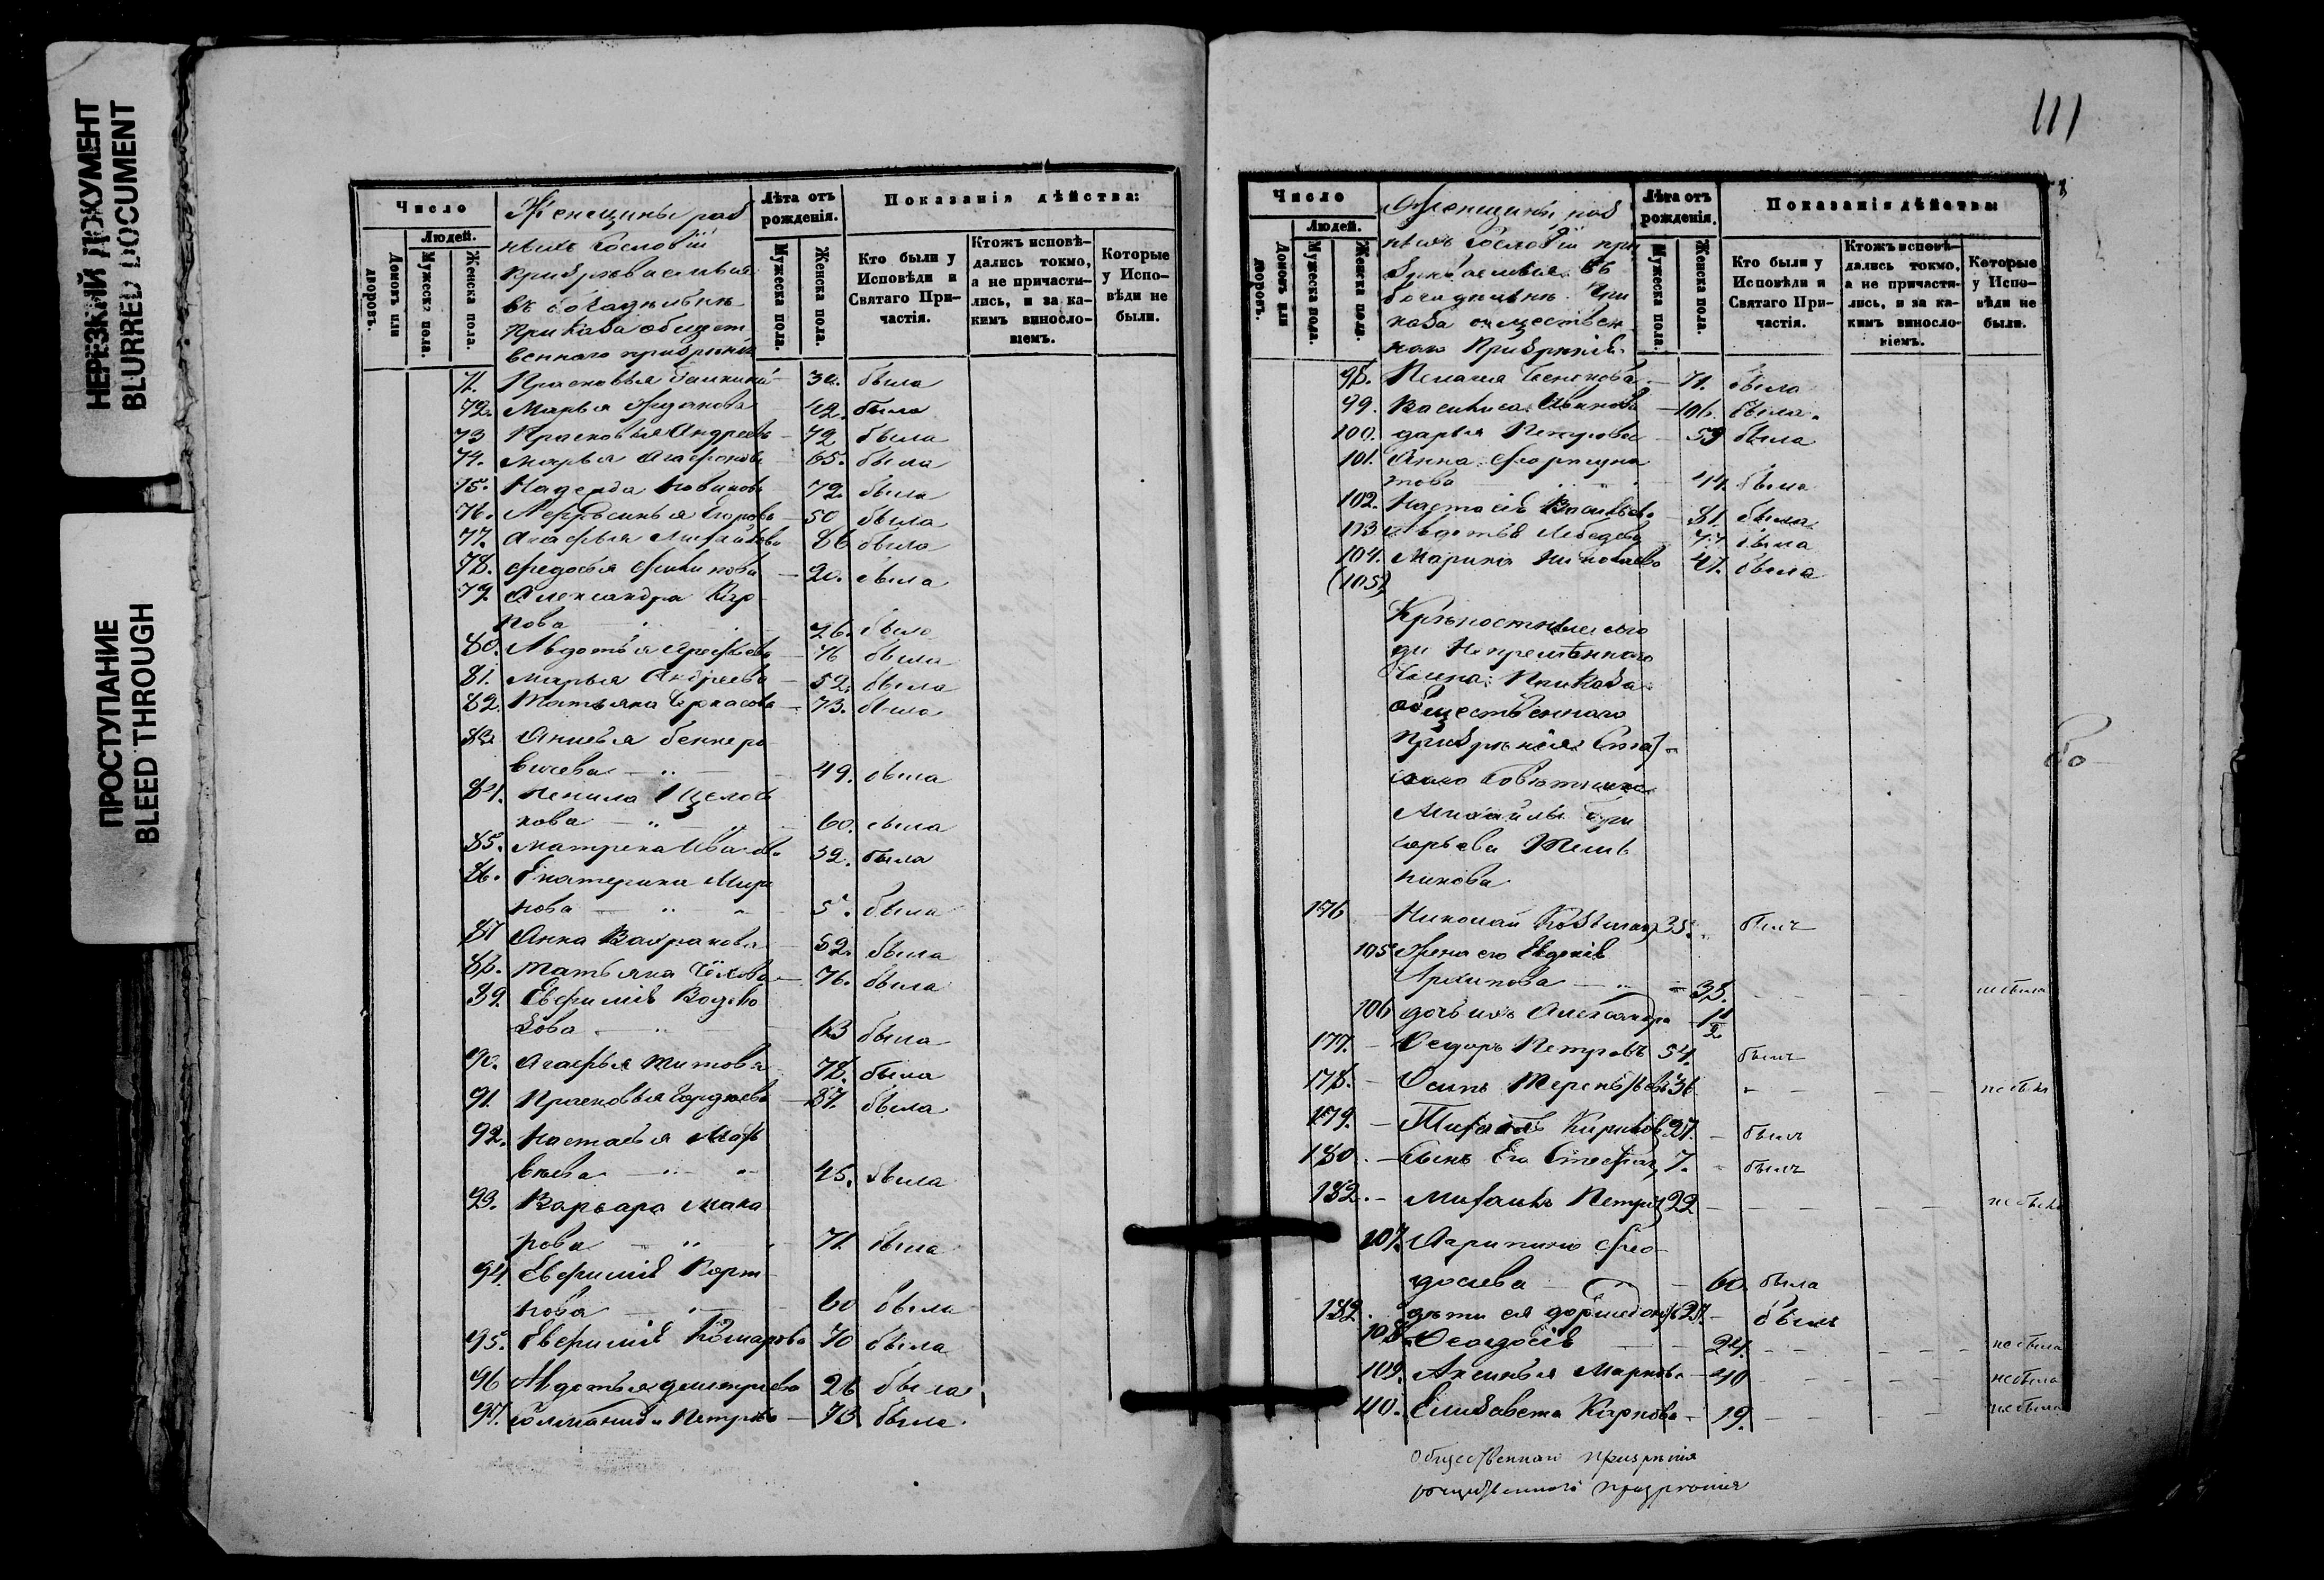 НЕРЕЗКИЙ ДОКУМЕНТ
BLURRED DOCUMENT
ПРОСТУПАНИЕ
BLEED THROUGH
Число
Людей.
Домовъ или дворовъ.
Мужеска пола.
Женска пола.
Женщины раз
ныхъ сословій
призрѣваемыя
въ богадѣльнѣ
Приказа общест
веннаго призрѣнія
Лѣта отъ рожденія.
Мужеска пола.
Женска пола.
Показанія дѣйства:
Кто были у Исповѣди и Святаго Причастія.
Ктожъ исповѣдались токмо, а не причастились, и за какимъ винословіемъ.
Которые у Исповѣди не были.
71. Прасковья 30. была
72. Марья Жданова 42. была
73 Прасковья Андреева 72 была
74. Марья Агафонова 65. была
75. Надежда Новикова 72. была
76. Афросинья Егорова 50 была
77. Агафья Михайлова 86 была
78. Федосья Филинова 20. была
79. Александра Кар
пова 26. была
80. Авдотья Арефьева 76 была
81. Марья Андреева 52. была
82. Татьяна Черкасова 73. была
83. Анисья
вичева 49. была
84. Ненила Щелов
кова 60. была
85. Матрена Иванова 32. была
86. Екатерина Миро
нова 5 . была
87 Анна 52. была
88. Татьяна Чёхова 76. была
89. Евфимія
зова 63 была
90. Агафья Титова 78. была
91. Прасковья Гордѣева 87. была
92. Настасья Мат
вѣева 45. была
93. Варвара Мака
рова 71. была
94. Евфимія Корт
нова 60 была
95. Евфимія Комарова 70 была
96 Авдотья Дмитриева 26 была
97. Соломанида Петрова 73 была
111
Число
Людей.
Домовъ или дворовъ.
Мужеска пола.
Женска пола.
Женщины раз
ныхъ сословій при
зрѣваемыя въ
богадѣльнѣ При
каза обществен
наго Призрѣнія
Лѣта отъ рожденія.
Мужеска пола.
Женска пола.
Показанія дѣйства:
Кто были у Исповѣди и Святаго Причастія.
Ктожъ исповѣдались токмо, а не причастились, и за какимъ винословіемъ.
Которые у Исповѣди не были.
98. Пелагея Семенова 71. была
99. Василиса Иванова 106. была
100. Дарья Петрова 53 была
101. Анна Фортуна
това 44. была
102. Настасія Васильева 81. была
103 Авдотья Лебедева 77 была
104. Марина Николаева 47. была
(105)
Крѣпостные лю
ди Непремѣннаго
Члена Приказа
общественнаго
Призрѣнія Стат
скаго Совѣтника
Михайлы Гри
горьева Мель
никова
176 Николай 35. былъ
105 Жена его Евдокія
Архипова 33. не была
106 дочь ихъ Александра 1 1/2
177. Ѳедоръ Петровъ 54. былъ
178. Осипъ Терентьевъ 36 не былъ
179. Михаилъ Кириловъ 27. былъ
180. Сынъ Его Стефанъ 7. былъ
182. Михаилъ Петровъ 22 не былъ
107. Агрипина Фео
досіева 60. была
182. дѣти ея 27. былъ
108 Ѳеодосія 24. не была
109. Аксинья Маркова 40 не была
110. Елизавета Карпова 19. не была
Общественнаго призрѣнія
общественнаго призрѣнія